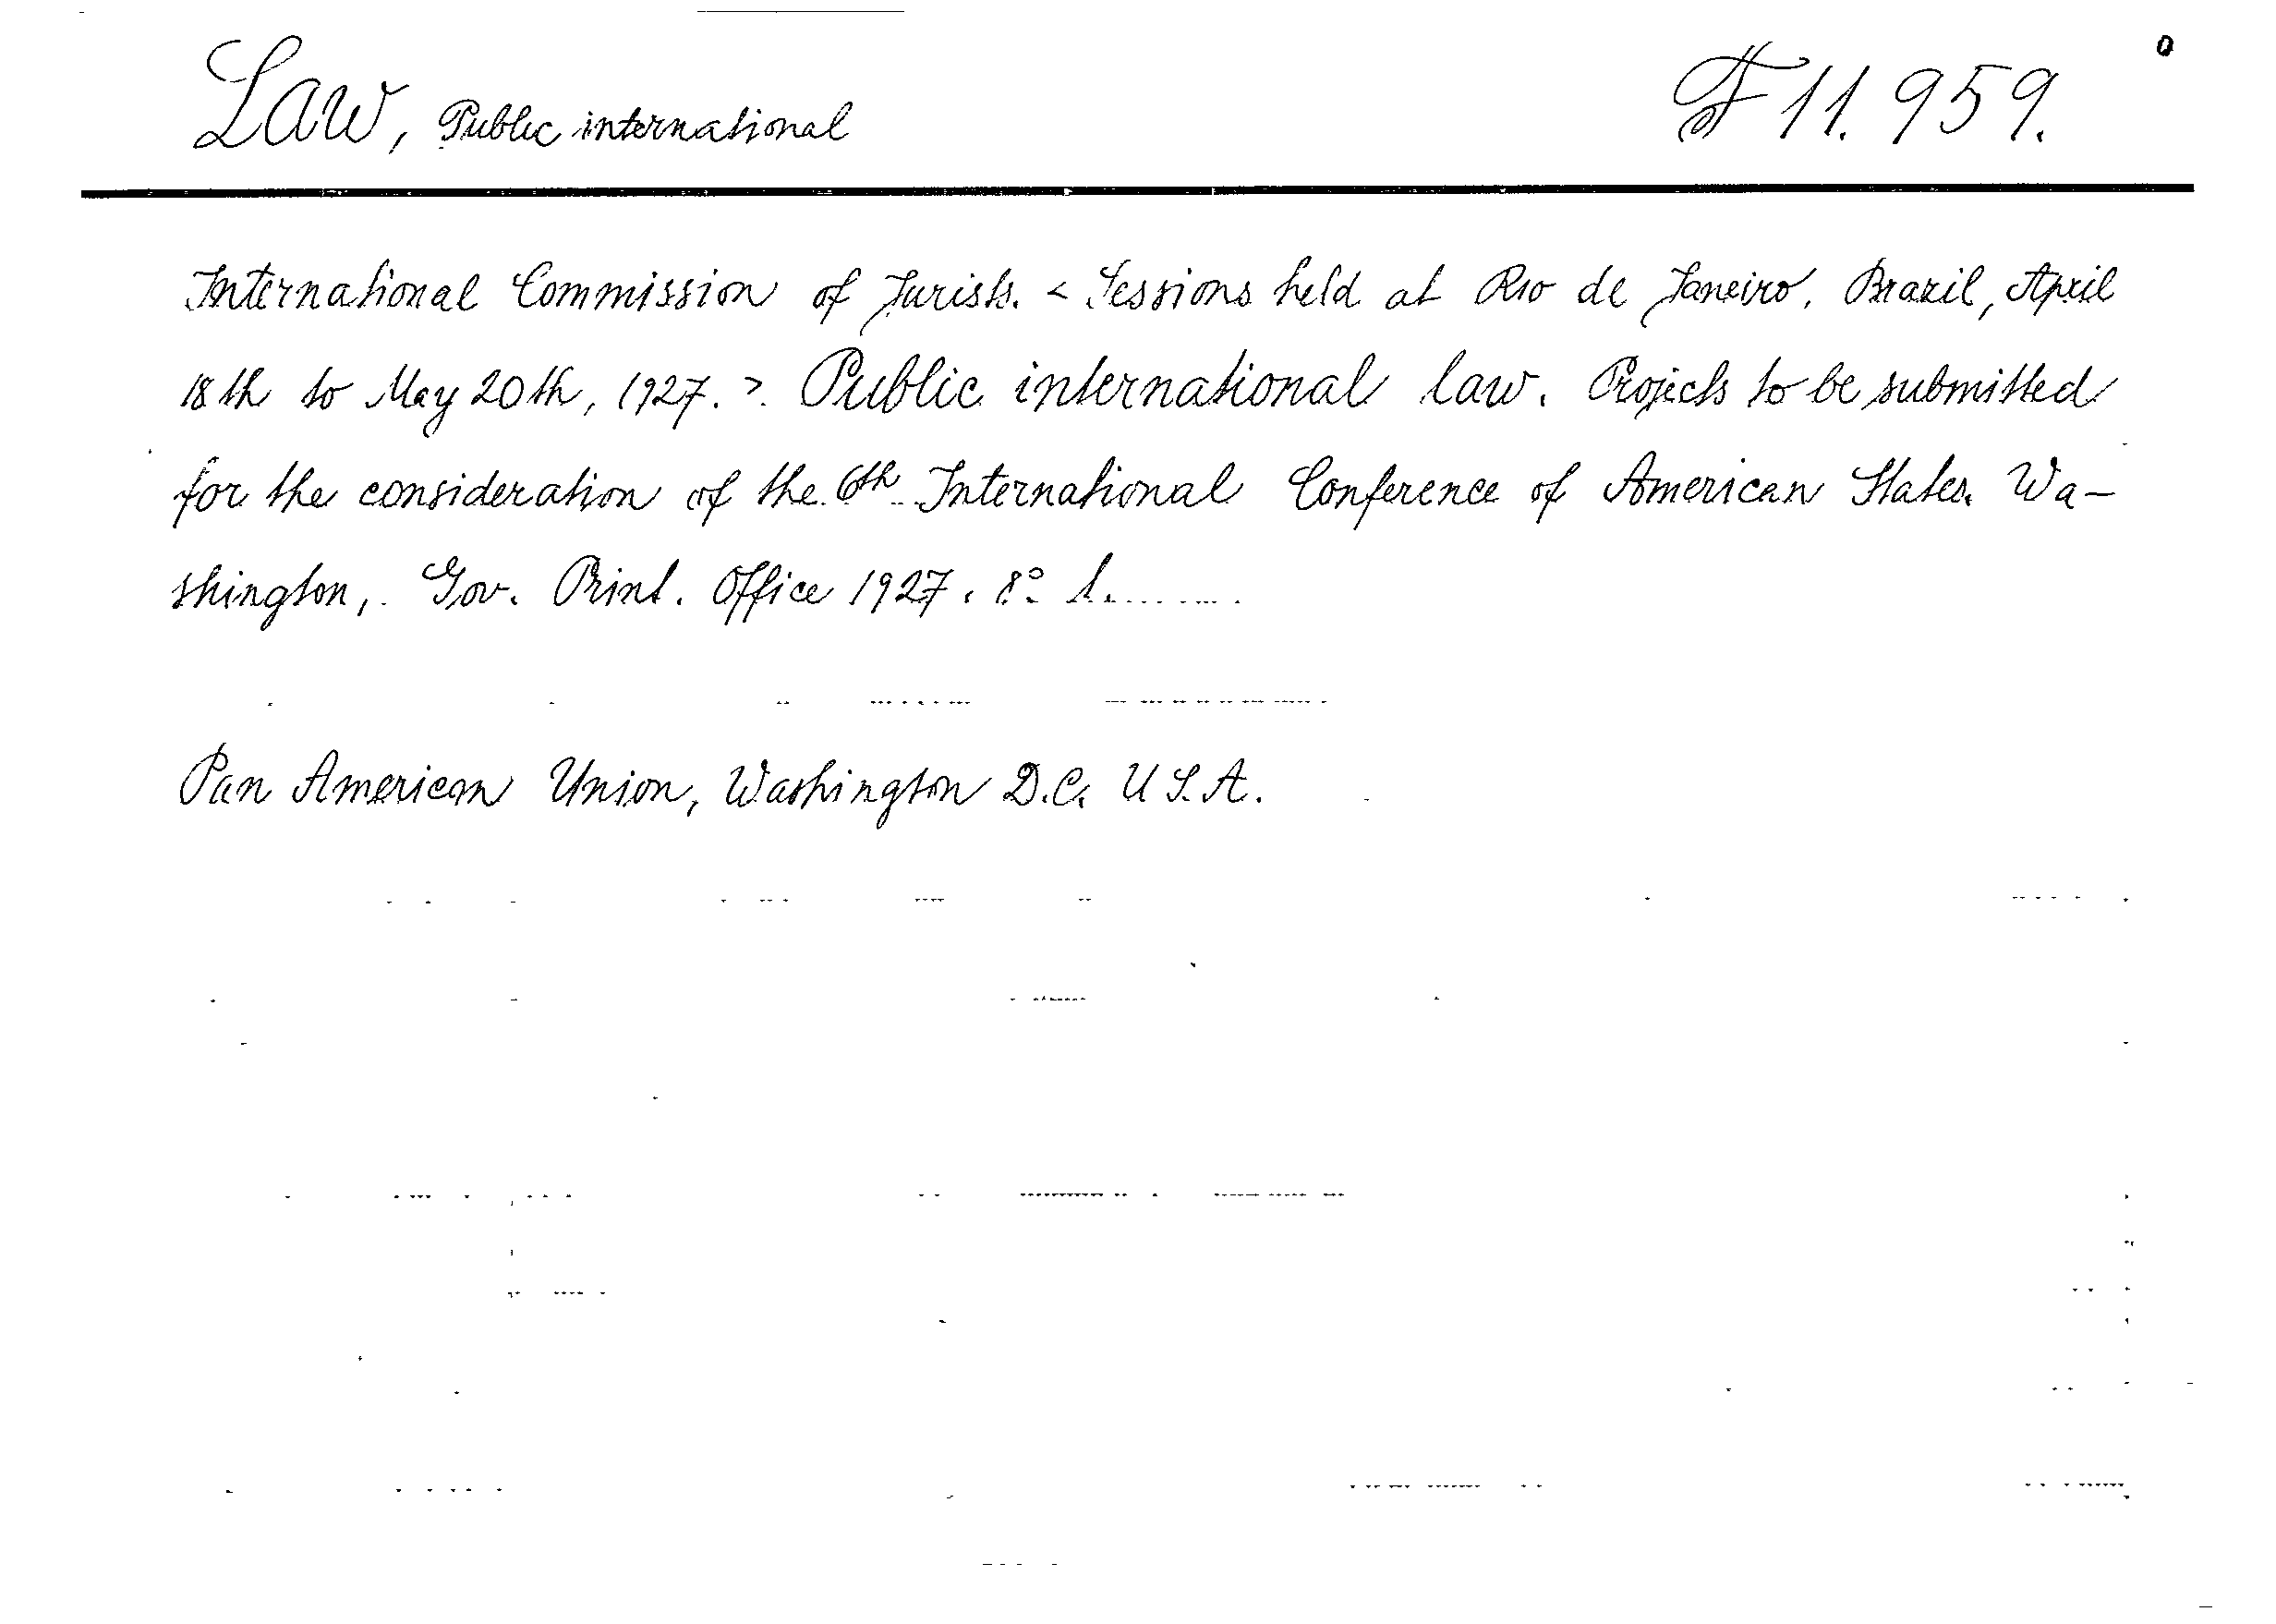 Law, Public international F 11.959.
International Commission of Jurists. < Sessions held at Rio de Janeiro, Brazil, April
18th to May 20th, 1927. >. Public international law. Projects to be submitted
for the consideration of the 6th International Conference of American States. Wa-
shington, Gov. Print. Office 1927. 8°
Pan American Union, Washington D.C. U.S.A.